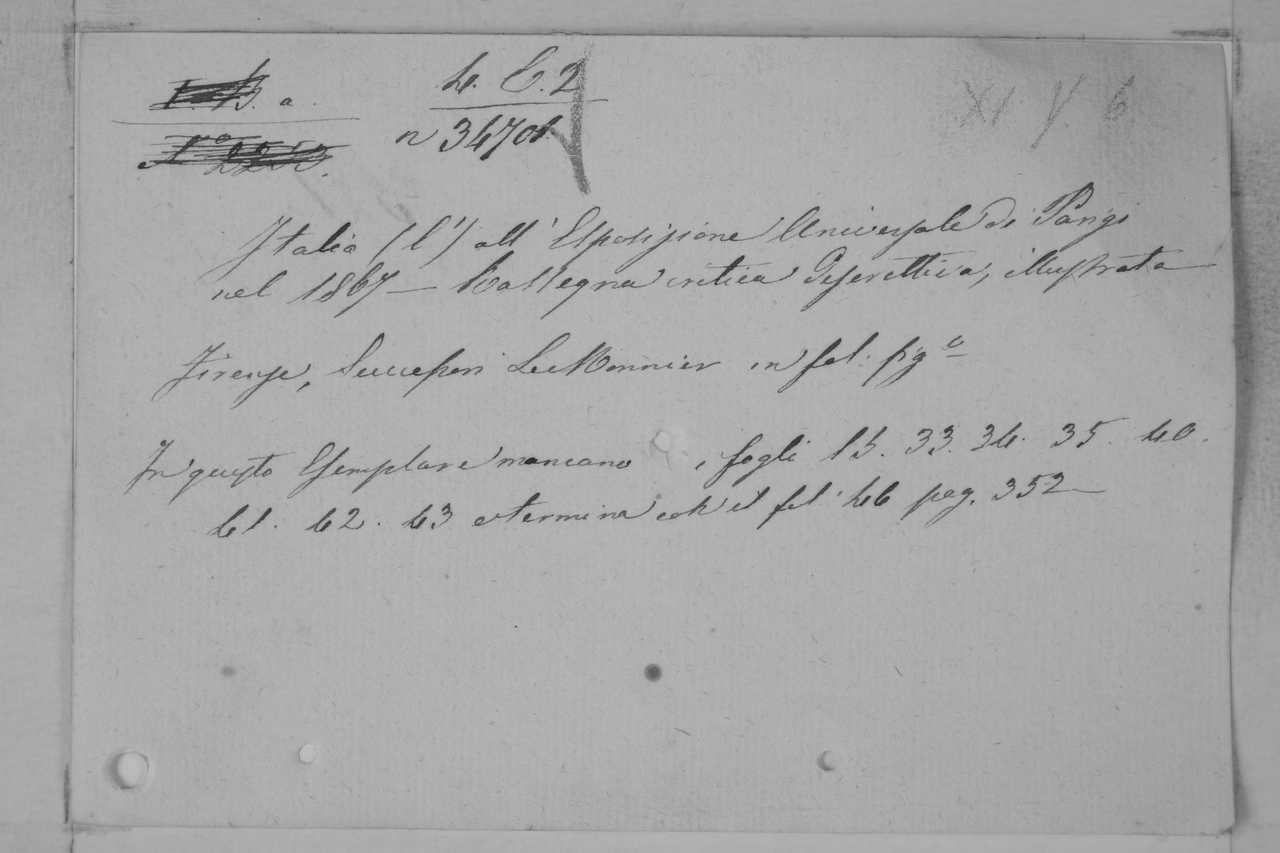 4. E. 2
n 3470
XI. V. 6
Italia (l') all' Esposizione Universale di Parigi
nel 1867 — Rassegna critica descrittiva, illustrata
Firenze, Successori Le Monnier in fol. fig.o
In questo Esemplare mancano i fogli 15. 33. 34. 35. 40.
41. 42. 43 e termina col il fol. 46 pag. 352